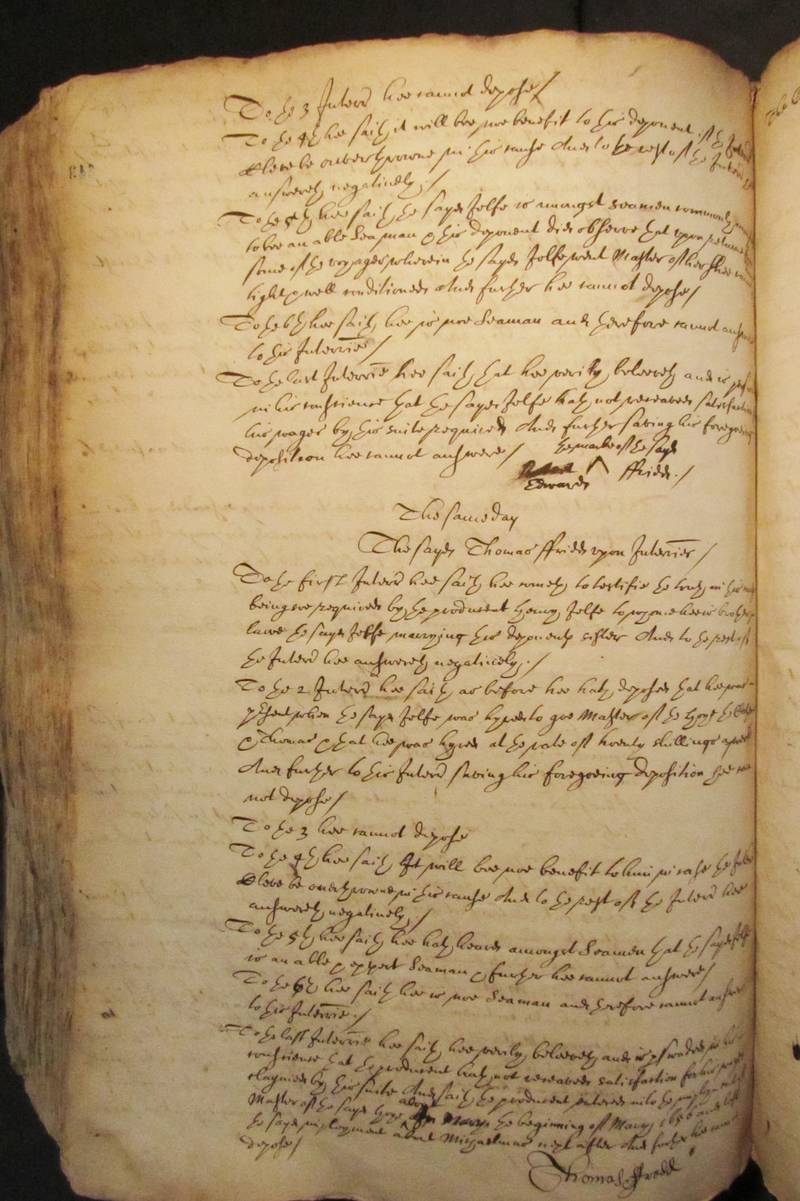 To the 3 Interr hee cannot depose/
To the 4th hee saith it will bee noe benefit to this deponent if the
be overthrowne in this cause And to the rest of the Interr
answereth negatively/
To the 5th hee saith the sayd Jolfe is amongst Seamen commonly
to bee an able Seaman & this deponent did observe that upon returne
some of the voyages wherein the sayd Jolfe went Master of her shee
tight & well conditioned And further hee cannot depose/
To the 6th hee saith hee is noe Seaman and therefore cannot answer
to this Interrie/
To the last Interrie hee saith that hee verily beleeveth and is
in his conscience that the sayd Jolfe hath not received satisfaction
his wages by this suite required And further saving his foregoeing
deposition hee cannot answere/
the marke of the sayd
Edward ffrid./
The same day
The sayd Thomas ffridd upon Interries/
To the first Interr hee saith hee cometh to testifie the truth in this
being required by the producent Henry Jolfe to whome hee is brother in
lawe the sayd Jolfe marrying this deponents sister And to the rest of
the Interr hee answereth negatively./
To the 2 Interr hee saith as before hee hath deposed that hee was
present when the sayd Jolfe was hyred to goe Master of the Hoye the
& Thomas & that hee was hyred at the rate of twenty shillings a
And further to this Interr saving his foregoeing deposition hee can
not depose/
To the 3 hee cannot depose
To the 4th hee saith It will bee noe benefit to him in case the
be overthrowne in this cause And to the rest of the Interr hee
answereth negatively/
To the 5th hee saith hee hath heard amongst Seamen that the sayd Jolfe
is an able & expert Seaman & further hee cannot answere/
To the 6th hee saith hee is noe Seaman and therefore cannot answer
to this Interrie./
To the last Interrie hee saith hee verily beleeveth and is perswaded in his
conscience that the producent hath not received satisfaction for his wages
claymed by this suite And saith the producent entered into the imployment of
Master of the sayd hoye about the beginning of May 1656 and left
the sayd imployment about Michaelmas next after And further hee cannot
depose/
Thomas ffredd